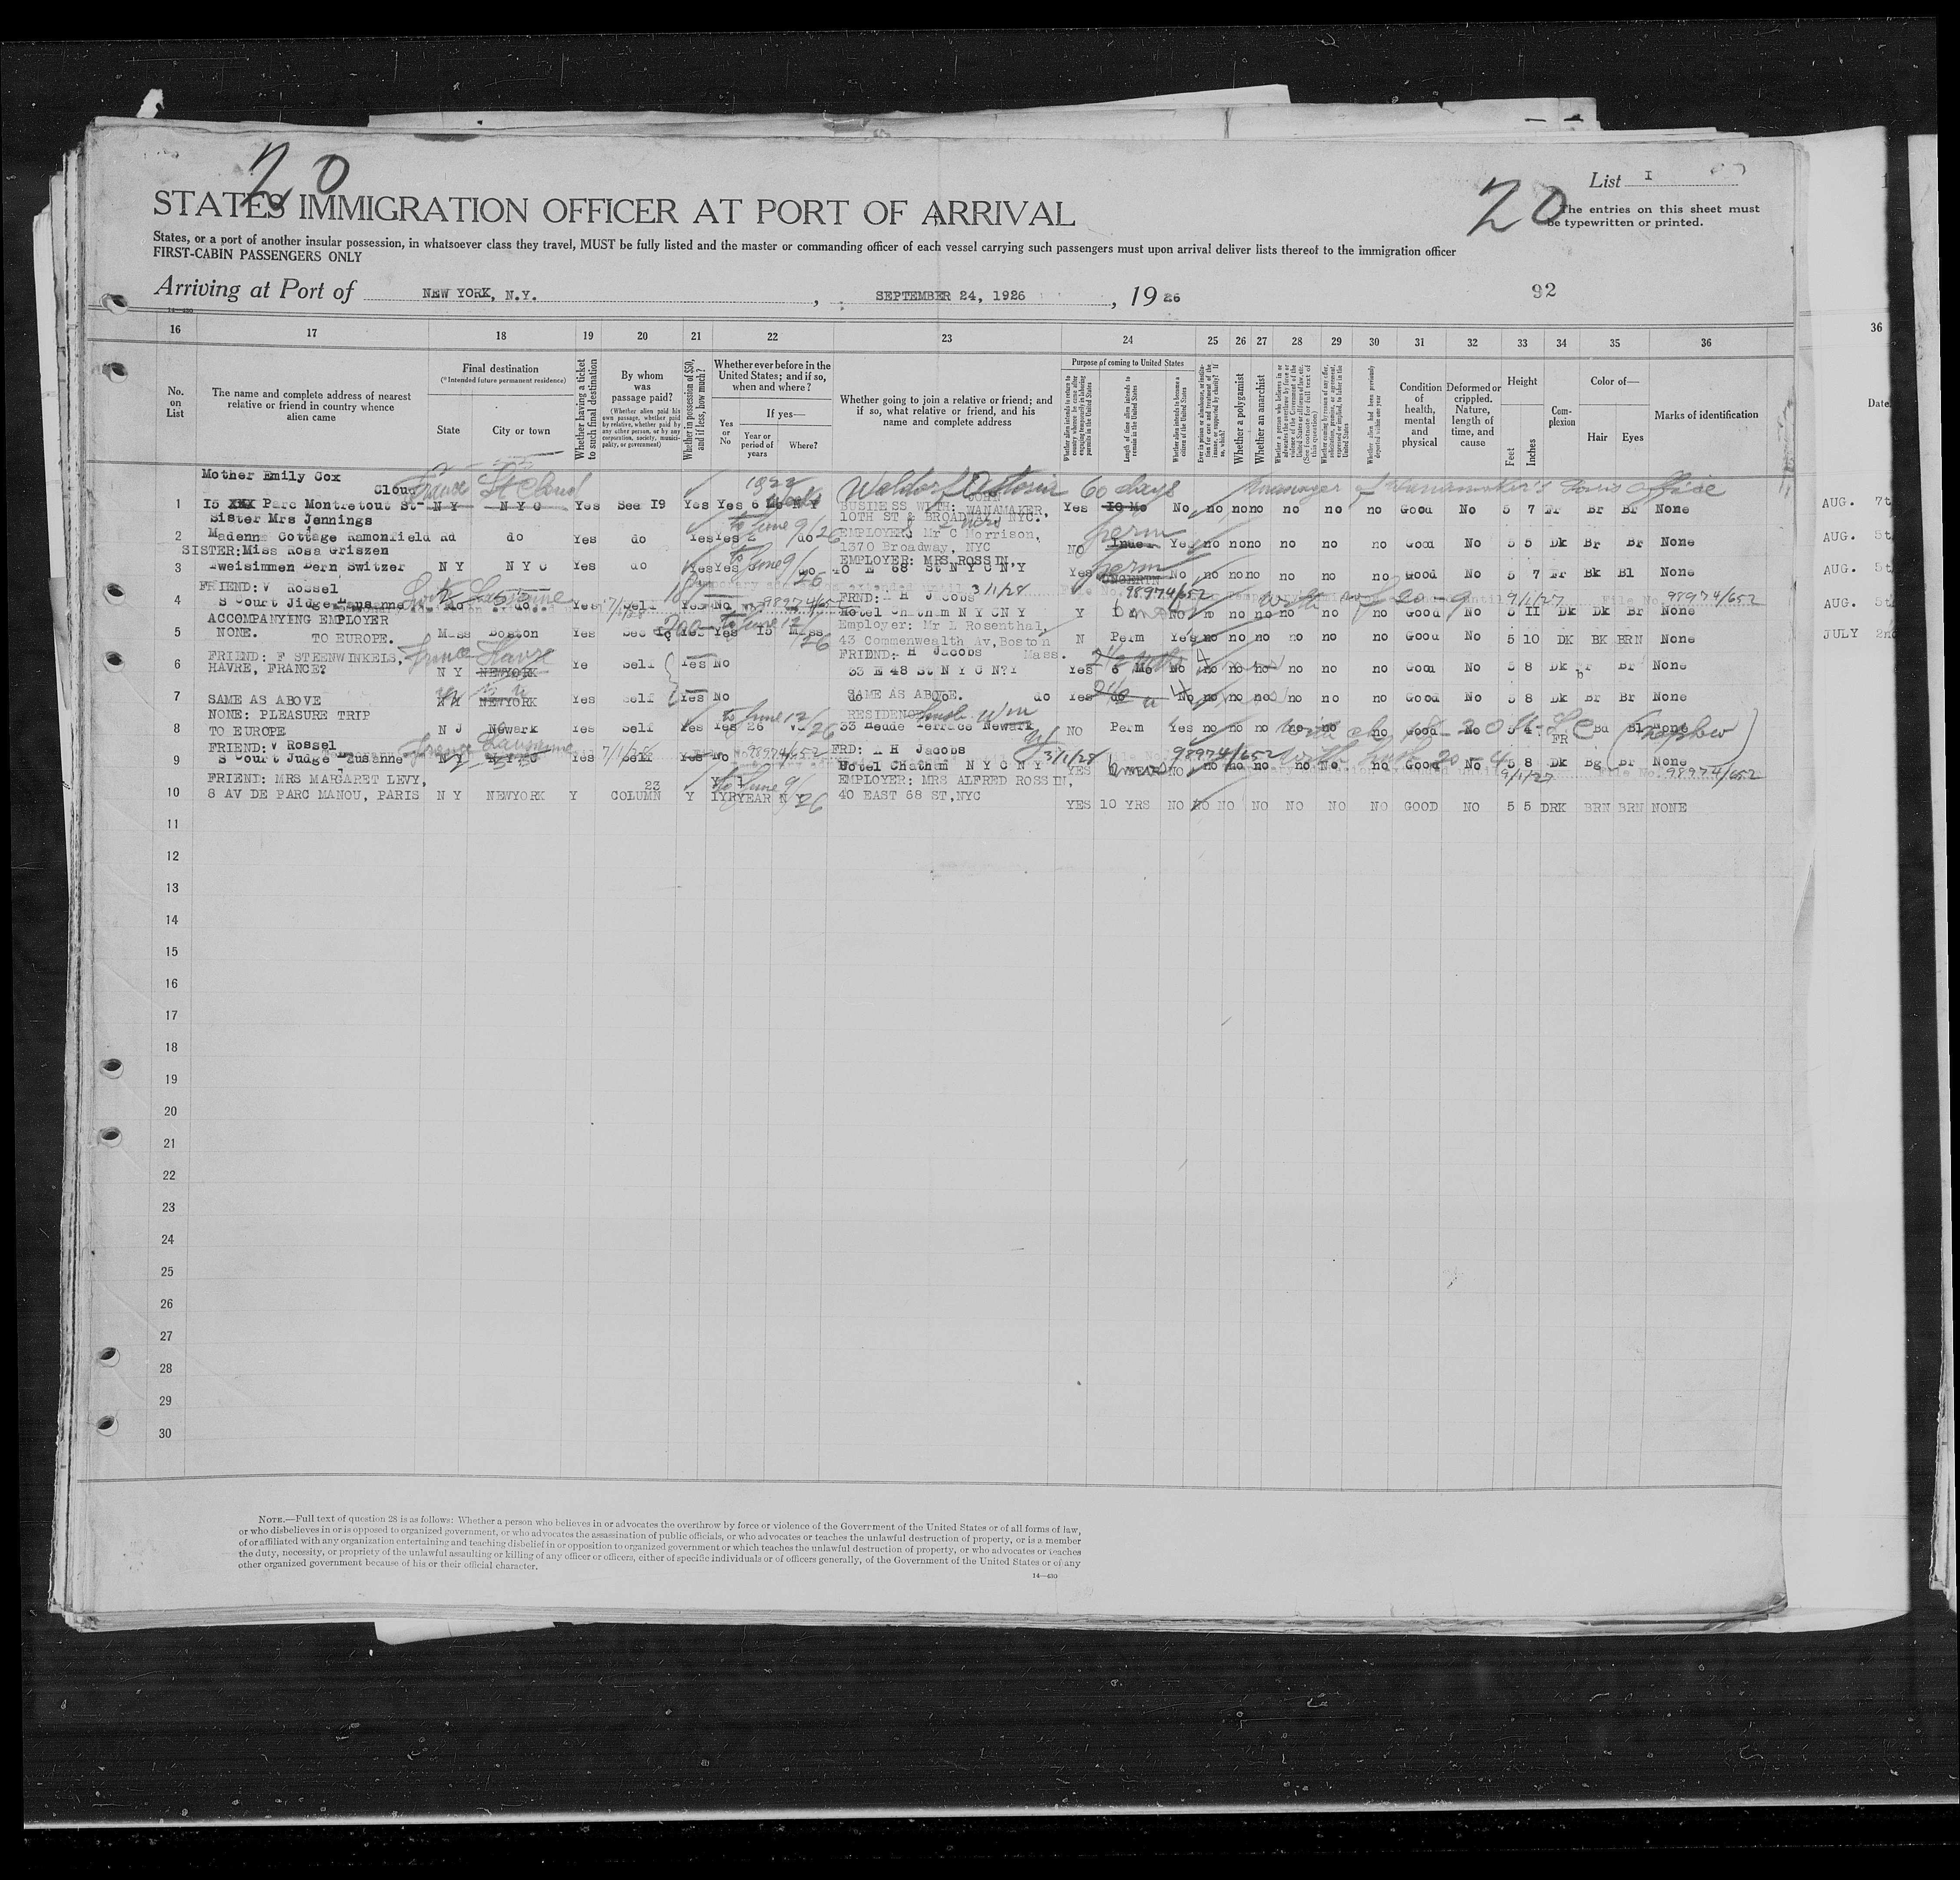 20
20
List I
STATES IMMIGRATION OFFICER AT PORT OF ARRIVAL
The entries on this sheet must
be typewritten or printed.
States, or a port of another insular possession, in whatsoever class they travel, MUST be fully listed and the master or commanding officer of each vessel carrying such passengers must upon arrival deliver lists thereof to the immigration officer
FIRST-CABIN PASSENGERS ONLY
Arriving at Port of NEW YORK, N.Y. , SEPTEMBER 24, 1926 , 19 26
92
14—430
16 17 18 19 20 21 22 23 24 25 26 27 28 29 30 31 32 33 34 35 36
36
No. on List
The name and complete address of nearest relative or friend in country whence alien came
Final destination
(*Intended future permanent residence)
State
City or town
Whether having a ticket to such final destination
By whom was passage paid?
(Whether alien paid his own passage, whether paid by relative, whether paid by any other person, or by any corporation, society, municipality, or government)
Whether in possession of $50, and if less, how much?
Whether ever before in the United States; and if so, when and where?
Yes or No
If yes—
Year or period of years
Where?
Whether going to join a relative or friend; and if so, what relative or friend, and his name and complete address
Purpose of coming to United States
Length of time alien intends to remain in the United States
Whether alien intends to become a citizen of the United States
Whether a polygamist
Whether an anarchist
Condition of health, mental and physical
Deformed or crippled. Nature, length of time, and cause
Height
Feet
Inches
Complexion
Color of—
Hair
Eyes
Marks of identification
Date
Mother Emily Cox
Cloud France St Cloud 1922 Waldorf Astoria 60 days manager of Wanamaker's Paris office
1 I5 XXX Parc Montretout St N Y N Y C Yes See I9 Yes Yes 6 N Y BUSINESS WITH: JOHN WANAMAKER, Yes IO Mo No no no no no no no Good No 5 7 Fr Br Br None
AUG. 7t
Sister Mrs Jennings
10TH ST & BROADWAY, NYC.
2 Madenna Cottage Ramonfield Rd do Yes do Yes Yes do to June 9/26 EMPLOYER: Mr C Morrison, NO perm Yes no no no no no no Good No 5 5 Dk Br Br None
1370 Broadway, NYC
AUG. 5t
SISTER: Miss Rosa Griszen
EMPLOYER: MRS. ROSSIN,
3 Zweisimmen Bern Switzer N Y N Y C Yes do Yes Yes to June 9/26 40 E 68 St N Y C N Y Yes perm No no no no no no no Good No 5 7 Fr Bk Bl None
AUG. 5t
FRIEND: V Rossel
FRND: H Jacobs 3/1/28 98974/652 9/1/27 File No. 98974/652
4 S Court Jidge Lausanne do. Yes 7/1/28 Self Yes No 98974/652 Hotel Chatham N Y C N Y Y No no no no no no no Good No 5 II Dk Dk Br None
AUG. 5t
ACCOMPANYING EMPLOYER
Employer: Mr L Rosenthal,
5 NONE. TO EUROPE. Mass Boston Yes 200 Yes Yes 15 Mass to June 12/26 43 Commonwealth Av, Boston Mass. N Perm Yes no no no no no no Good No 5 10 DK BK BRN None
JULY 2nd
FRIEND: F STEENWINKELS, France Havre
FRIEND: H Jacobs
6 HAVRE, FRANCE? N Y NEWYORK Ye Self Yes No 33 E 48 St N Y C N?Y Yes 6 Mo No no no no no no no Good No 5 8 Dk Br Br None
7 SAME AS ABOVE N Y NEWYORK Yes Self Yes No SAME AS ABOVE. do Yes do No no no no no no no Good No 5 8 Dk Br Br None
NONE: PLEASURE TRIP
RESIDENCE
8 TO EUROPE N J Newark Yes Self Yes Yes 26 to June 12/26 33 Heude Terrace Newark NO Perm Yes no no no no no no Good No 5 4 FR Bd Bl None (nephew)
FRIEND: V Rossel France Lausanne
FRD: H Jacobs 3/1/28 98974/652
9 S Court Judge Lausanne N Y N Y C Yes 7/1/28 Self Yes No 98974/652 Hotel Chatham N Y C N Y YES NO no no no no No no Good No 5 8 Dk Bg Br None
9/1/27 File No. 98974/652
FRIEND: MRS MARGARET LEVY,
EMPLOYER: MRS ALFRED ROSSIN,
10 8 AV DE PARC MANOU, PARIS N Y NEWYORK Y COLUMN 23 Y 1YR to June 9/26 40 EAST 68 ST, NYC YES 10 YRS NO NO NO NO NO NO NO GOOD NO 5 5 DRK BRN BRN NONE
11
12
13
14
15
16
17
18
19
20
21
22
23
24
25
26
27
28
29
30
NOTE.—Full text of question 28 is as follows: Whether a person who believes in or advocates the overthrow by force or violence of the Government of the United States or of all forms of law,
or who disbelieves in or is opposed to organized government, or who advocates the assassination of public officials, or who advocates or teaches the unlawful destruction of property, or is a member
of or affiliated with any organization entertaining and teaching disbelief in or opposition to organized government or which teaches the unlawful destruction of property, or who advocates or teaches
the duty, necessity, or propriety of the unlawful assaulting or killing of any officer or officers, either of specific individuals or of officers generally, of the Government of the United States or of any
other organized government because of his or their official character.
14—430